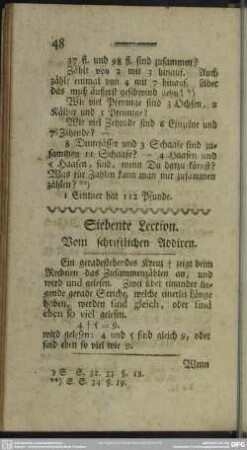 48
37 fl. und 98 fl. sind zusammen?
Zählt von 2 mit 3 hinauf. Auch
zählt einmal von 4 mit 7 hinauf. Aber
das muß äußerst geschwind gehn! *)
Wie viel Pfennige sind 3 Ochsen, 2
Kälber und 1 Pfennige?
Wie viel Zehende sind 6 Einzelne und
7 Zehende? —
8 und 3 Schaafe sind zu-
sammen 11 Schaafe? — 4 Haasen und
5 Haasen, sind, wenn Du dazu
Was für Zahlen kann man nur zusammen
zählen? **)
1 Centner hat 112 Pfunde.
Siebente Lection.
Vom schriftlichen Addiren.
Ein geradestehendes Kreuz † zeigt beim
Rechnen das Zusammenzählen an, und
wird und gelesen. Zwei über einander lie-
gende gerade Striche, welche einerlei Länge
haben, werden sind gleich, oder sind
eben so viel gelesen.
4 † 5 = 9.
wird gelesen: 4 und 5 sind gleich 9, oder
sind eben so viel wie 9.
Wenn
*) S. S. 32. 33 §. 18.
**) S. S. 34 §. 19.